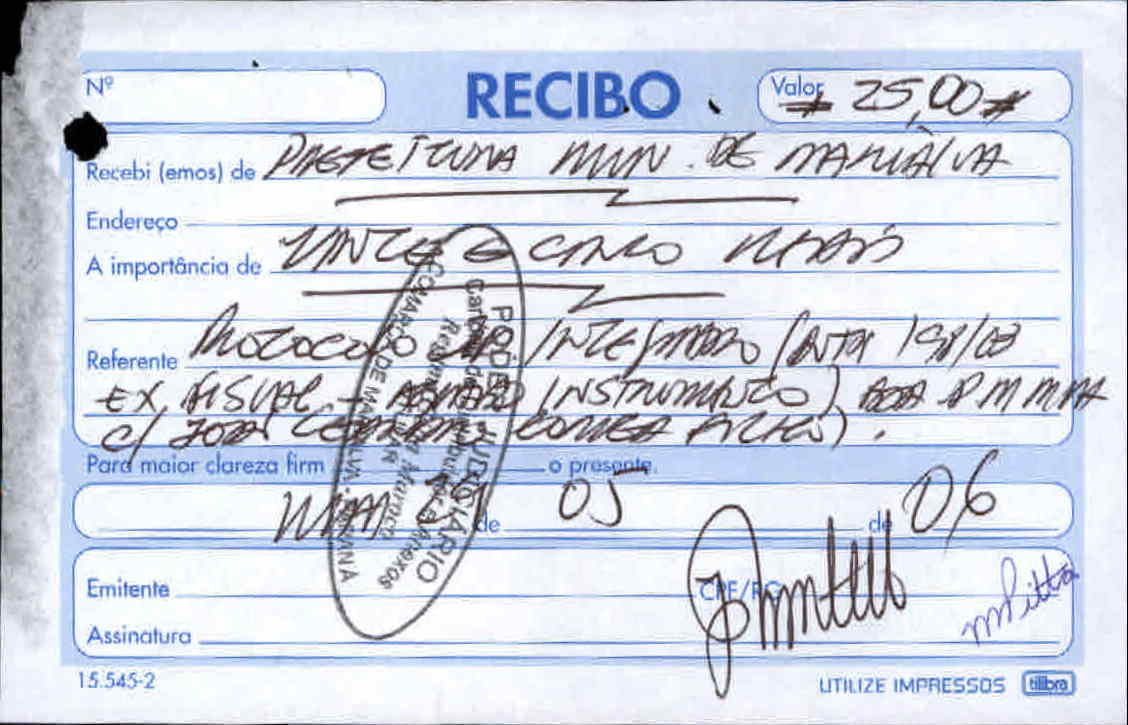 Nº RECIBO Valor # 25,00 #
Recebi (emos) de PREFEITURA MUN. DE MARIALVA
Endereço
A importância de VINTE E CINCO REAIS
Referente PROTOCOLO INTEGRADO (CARTA 198/03
EX FISCAL - AGRAVO INSTRUMENTO) P M MVA
C/ CORREA FILHO).
Para maior clareza firm o presente.
MVA de 05 de 06
Emitente CPF/RG
Assinatura
PODER JUDICIÁRIO
Cartório do Distribuidor e Anexos
COMARCA DE MARIALVA - PARANÁ
mPitta
15.545-2 UTILIZE IMPRESSOS tilibra